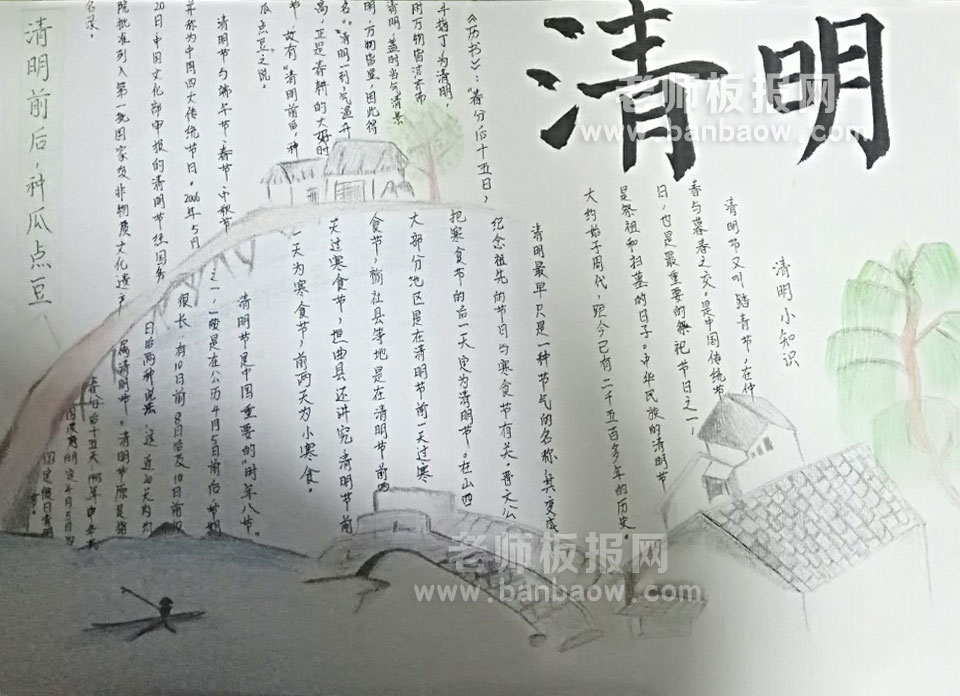 清明
清明小知识
清明节又叫踏青节,在仲
春与暮春之交,是中国传统节
日,也是最重要的祭祀节日之一,
是祭祖和扫墓的日子。中华民族的清明节
大约始于周代,距今已有二千五百多年的历史。
清明最早只是一种节气的名称,其变成
纪念祖先的节日与寒食节有关。晋文公
把寒食节的后一天定为清明节。在山西
大部分地区是在清明节前一天过寒
食节,榆社县等地是在清明节前两
天过寒食节,垣曲县还讲究清明节前
一天为寒食节,前两天为小寒食。
清明节是中国重要的"时年八节"
之一,一般是在公历4月5日前后,节期
很长,有10日前8日后及10日前10
日后两种说法,这近20天内均
属清明节。清明节原是指
春分后十五天,1935年中华民
国政府明定4月5日为
国定假日清明
节。
《历书》:"春分后十五日,
斗指丁为清明,
时万物皆洁齐而
清明,盖时当气清景
明,万物皆显,因此得
名。"清明一到,气温升
高,正是春耕的大好时
节,故有"清明前后,种
瓜点豆"之说。
清明节与端午节、春节、中秋节
并称为中国四大传统节日。2006年5月
20日中国文化部申报的清明节经国务
院批准列入第一批国家级非物质文化遗产
名录。
清明前后,种瓜点豆
老师板报网
www.banbaow.com
老师板报网
www.banbaow.com